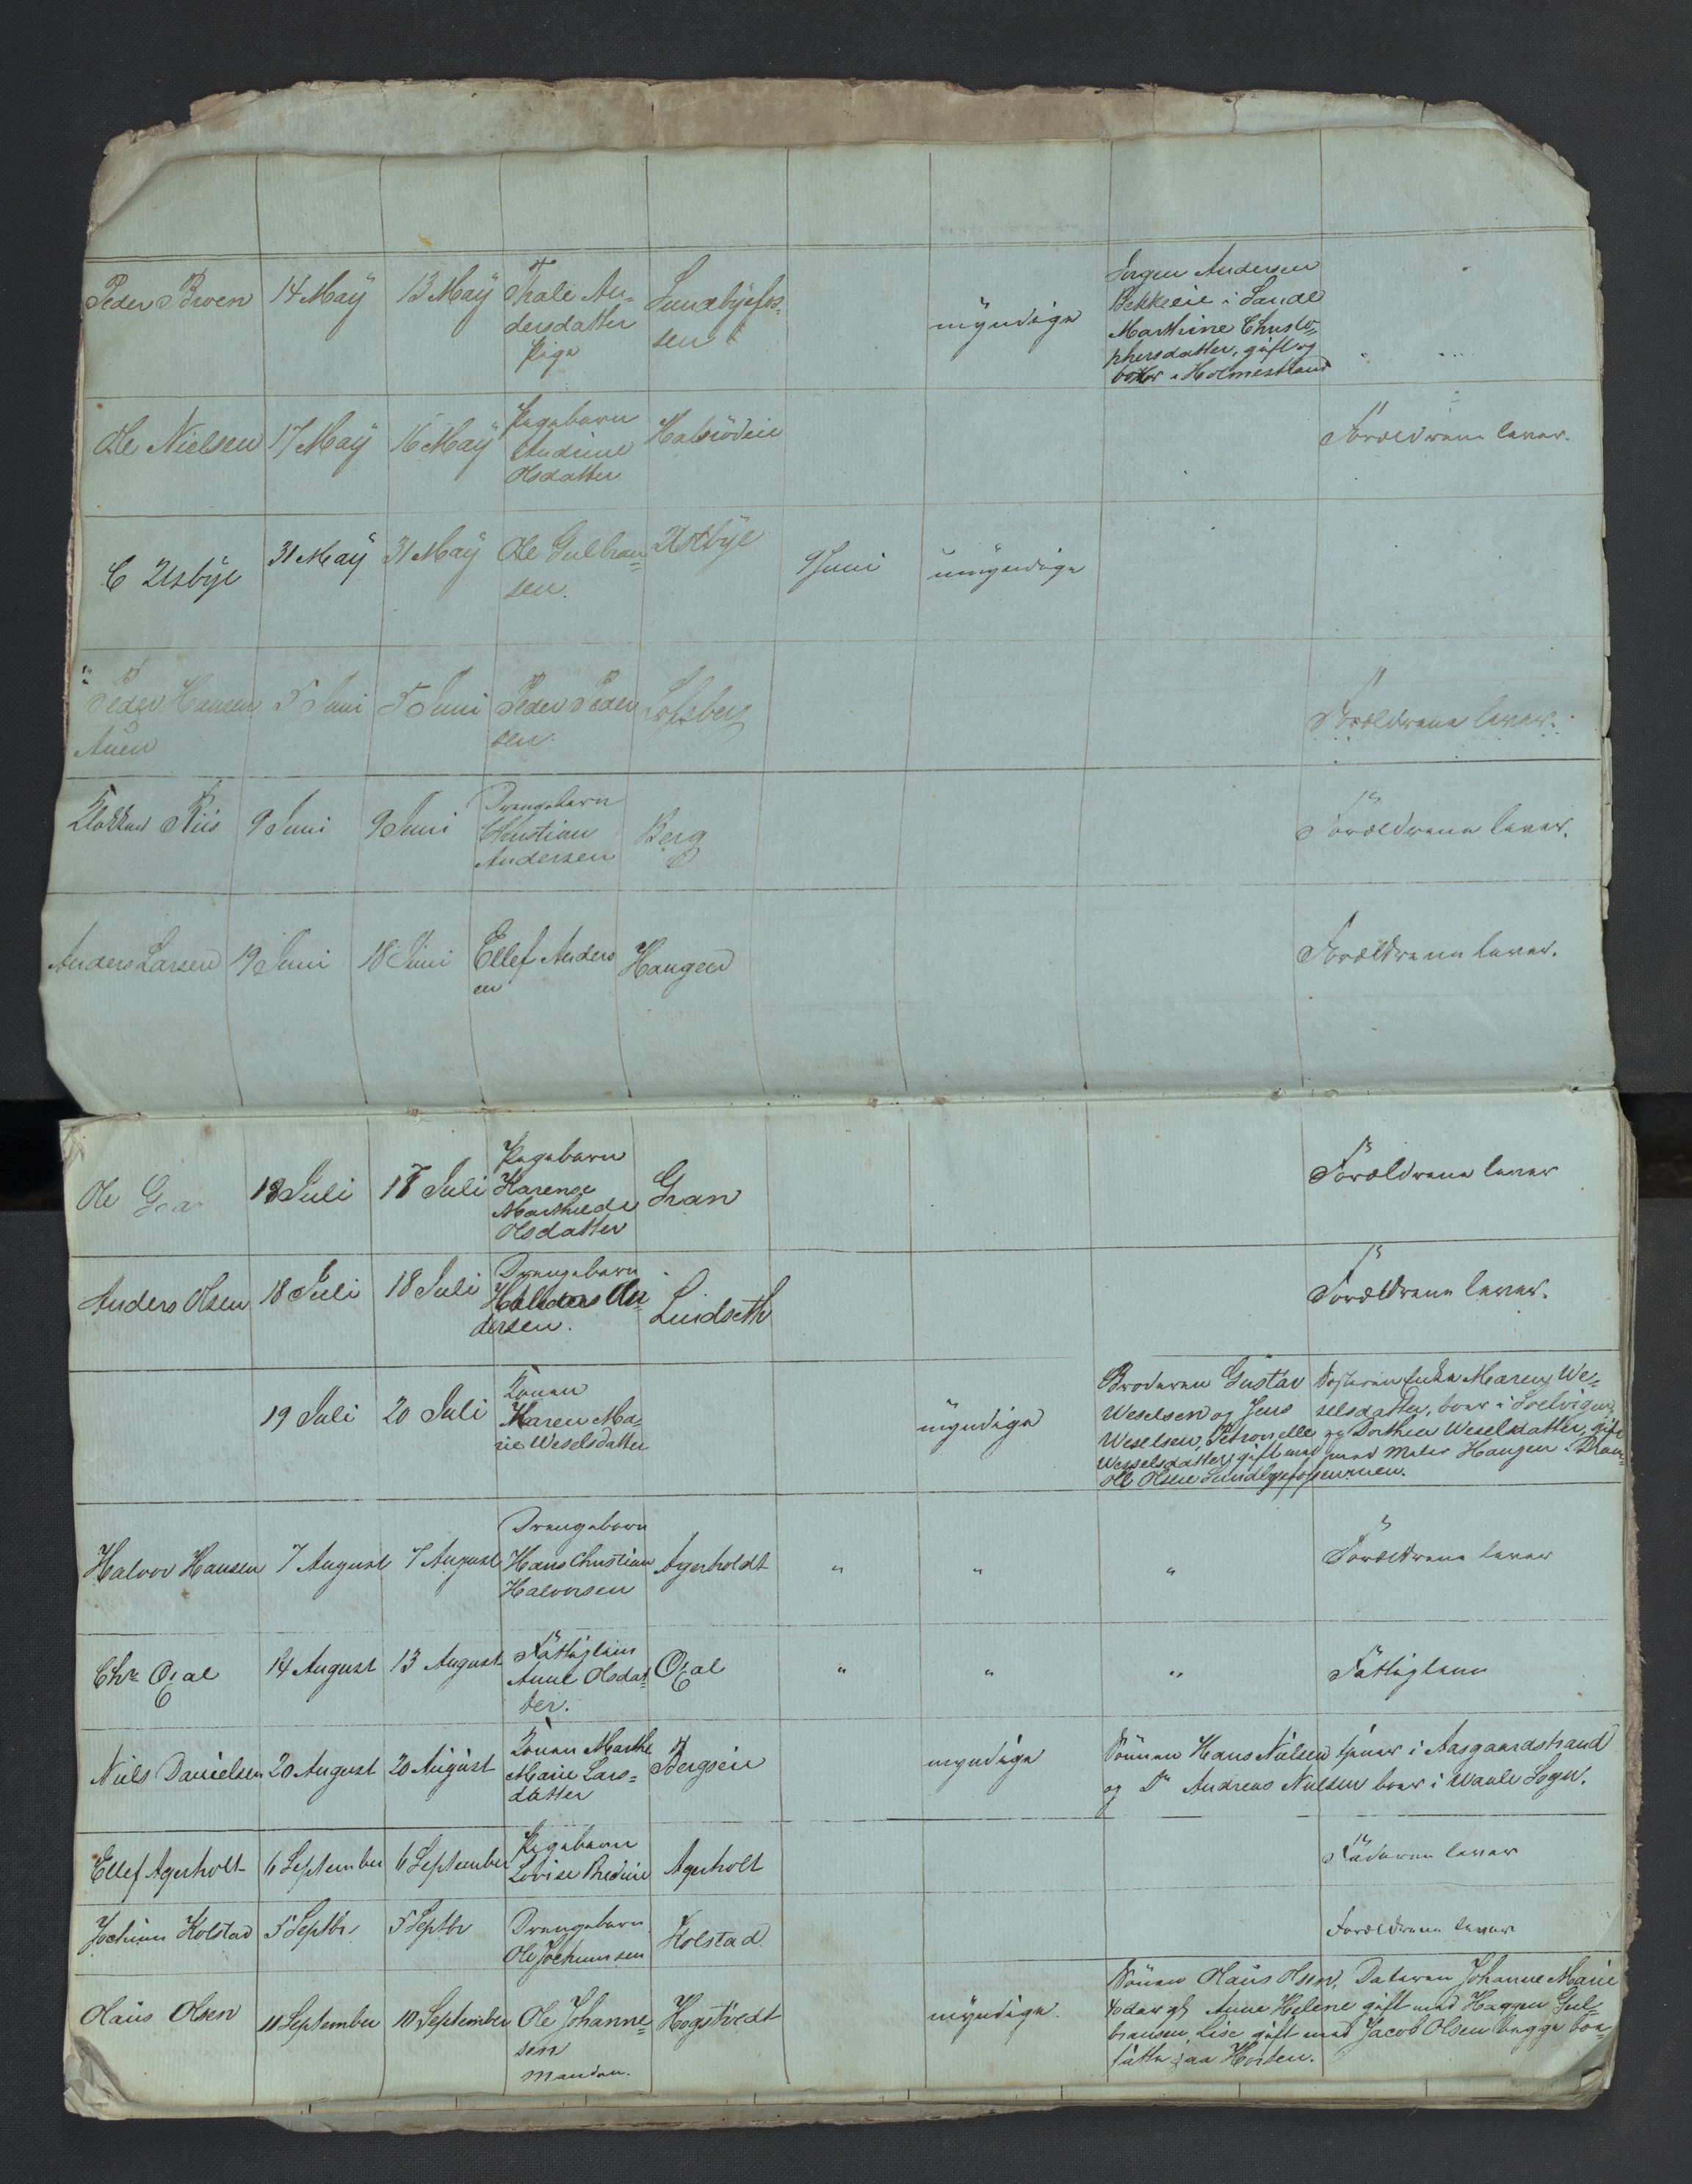 Peder Broen 14 Maÿ 13 Maÿ Thale An=
dersdatter
Pige
Sundbÿefos=
sen
mÿndige
Jørgen Andersen
Bekkeeie i Sande
Marthine Christo=
phersdatter, gift og
boer i Holmestrand
Ole Nielsen 17 Maÿ 16 Maÿ Pigebarn
Andrine
Olsdatter
Forældrene lever.
C Usbÿe 31 Maÿ 31 Maÿ Ole Gulbran=
sen.
Usbÿe 9 Juni umÿndige
Peder Hansen
5 Juni 5 Juni Peder Peder
sen.
Lofsberg Forældrene lever.
Klokker Riis 9 Juni 9 Juni Drengebarn
Christian
Andersen
Berg Forældrene lever.
Anders Larsen 19 Juni 18 Juni Ellef Anders
en
Haugen Forældrene lever.
Ole 18 Juli 17 Juli Pigebarn
Karense
Mathilde
Olsdatter
Gran Forældrene lever
Anders Olsen 18 Juli 18 Juli Drengebarn
An=
dersen.
Lindseth Forældrene lever.
19 Juli 20 Juli Konen
Maren Ma=
rie Weselsdatter
mÿndige
Broderen Gustav
Weselsen og Jens
Weselsen, Petronelle
Wesselsdatter, gift med
Ole Olsen Sundbyefossen
Søsteren Enke Maren We=
selsdatter, boer i Selvigen,
og Dorthea Weselsdatter, gift
med Maler Haugen i Dram=
men.
Halvor Hansen 7 August 7 August Drengebarn
Hans Christian
Halvorsen
Agerholdt " " " Forældrene lever
Chr. 14 August 13 August Fattiglem
Anne Olsdat=
ter.
" " " Fattiglem
Niels Danielsen 20 August 20 August Konen Marthe
Marie Lars=
datter
Bergseie myndige Sönnen Hans Nielsen tjener i Aasgaardstrand
og Do Andreas Nielsen boer i Waale Sogn.
Ellef Agerholt 6 September 6 September Pigebarn
Lovise
Agerholt Faderen lever
Jochum Kolstad 5 Septbr. 5 Septbr Drengebarn
Ole Jochumsen
Kolstad Forældrene lever
Olaus Olsen 11 September 10 September Ole Johanne=
sen
Manden.
Hogstvedt mÿndige.
Sönnen Olaus Olsen, Dateren Johanne Marie
Anne Helene gift med Haagen Gul=
bransen, Lise gift med Jacob Olsen begge boe=
satte paa Horten.